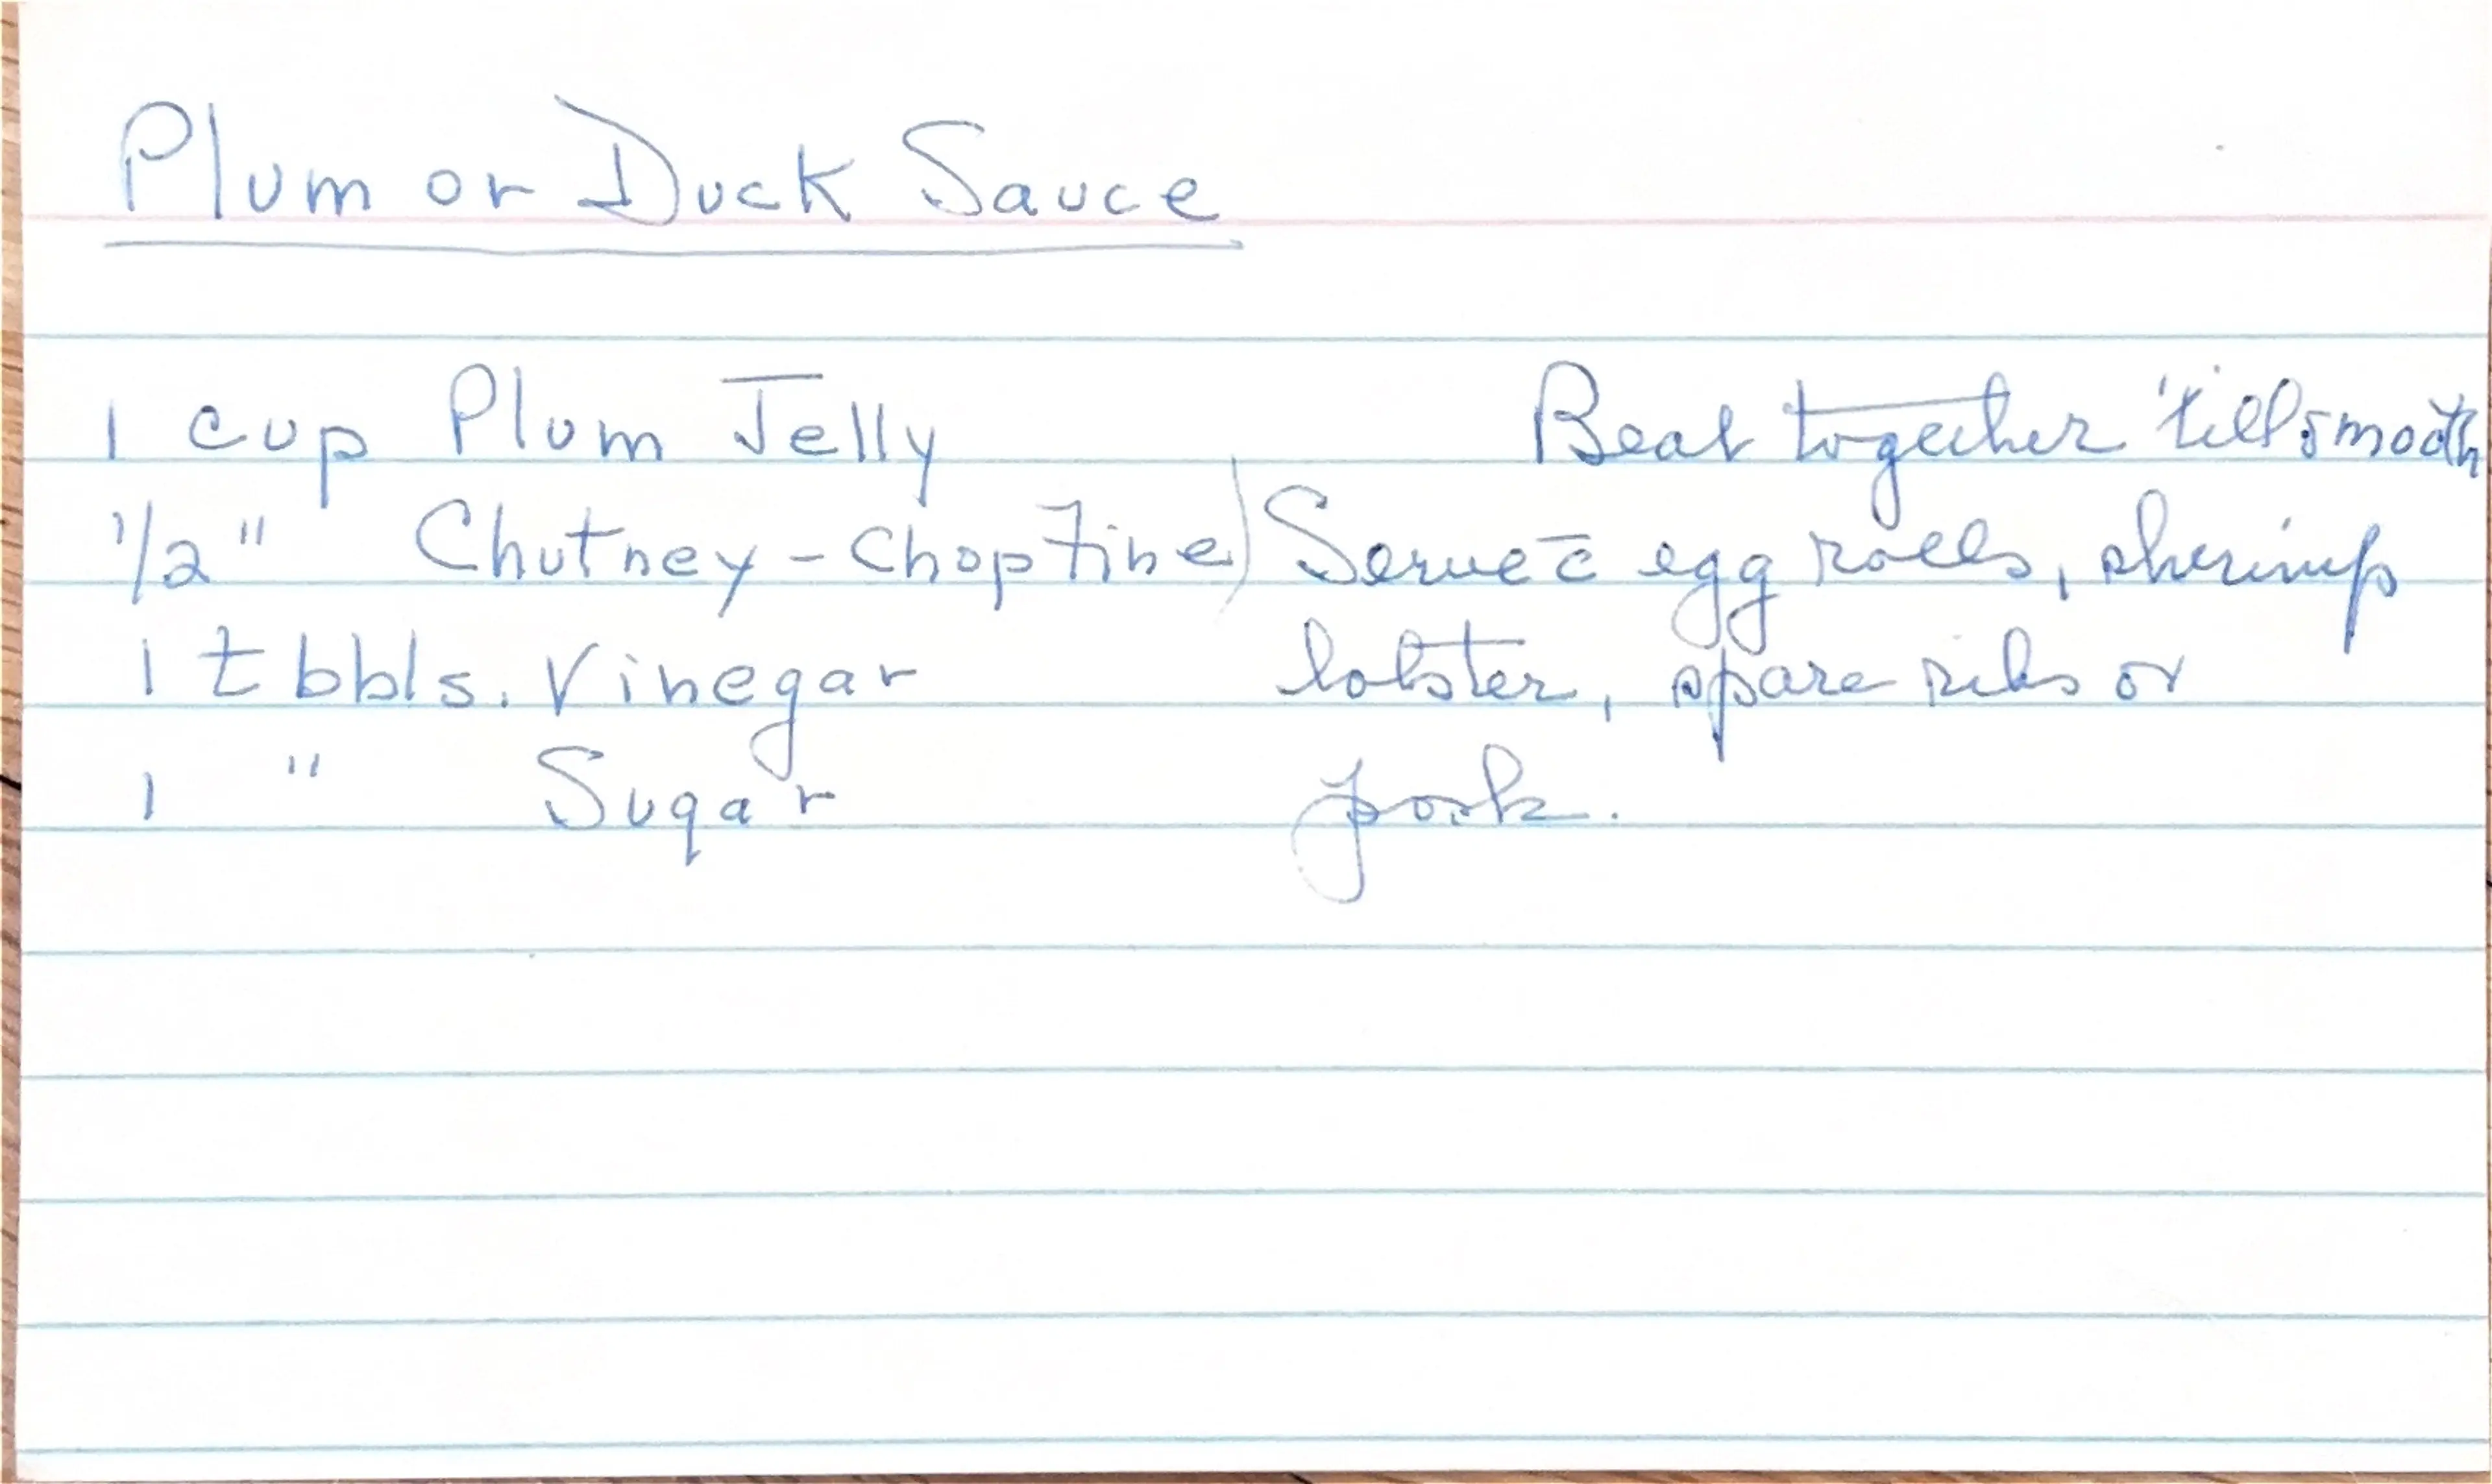 Plum or Duck Sauce
1 cup Plum Jelly
1/2 " Chutney - Chop Fine)
1 tbbls. Vinegar
1 " Sugar
Beat together 'till smooth
Serve c̄ egg rolls, shrimp
lobster, spare ribs or
pork.